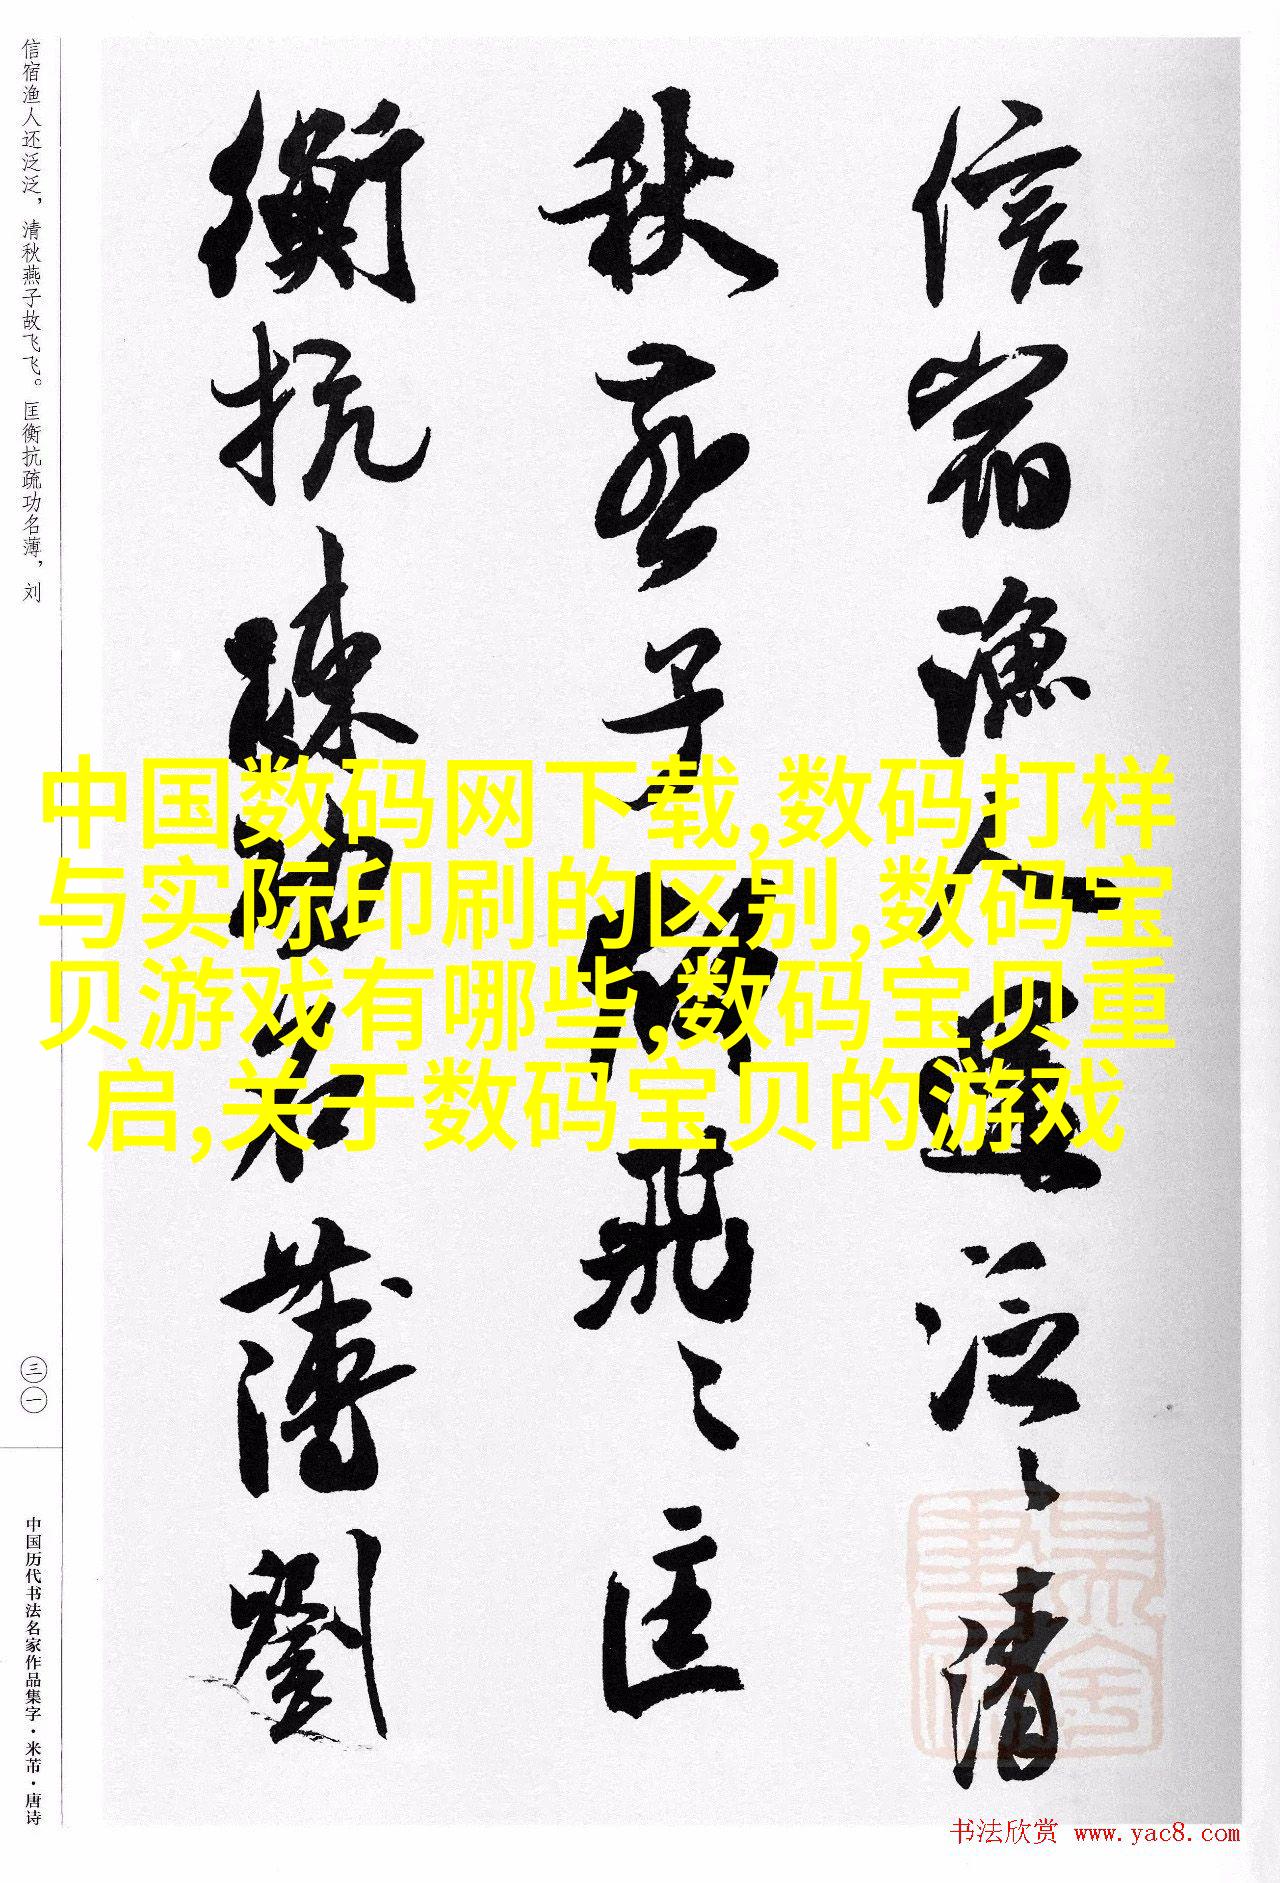 信宿渔人还泛泛，清秋燕子故飞飞。匡衡抗疏功名薄，刘
信宿漁人還泛〻清
秋燕子故飛〻匡
衡抗疏功名薄劉
中国数码网下载,数码打样
与实际印刷的区别,数码宝
贝游戏有哪些,数码宝贝重
启,关于数码宝贝的游戏
三一
中国历代书法名家作品集字·米芾·唐诗
书法欣赏 www.yac8.com